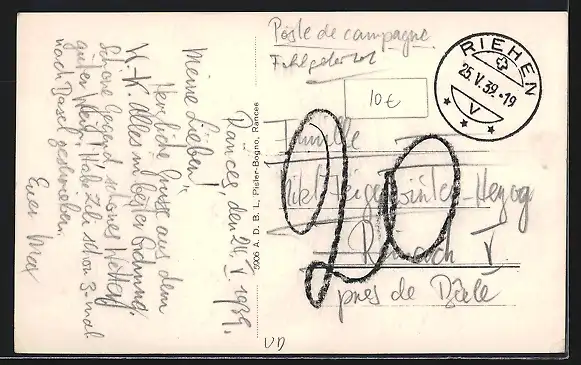 Rances, den 24. V. 1939.
Meine Lieben!
Herzliche Grüsse aus dem
W.K. alles in bester Ordnung.
Schöne Gegend, schönes Wetter,
guten Wein! Habe Zeli schon 3-mal
nach Basel geschrieben.
Euer Max
5906 A. D. B. L. Pisler-Bogno, Rances
Poste de campagne
10 €
RIEHEN
25.V.39.-19
V
20
Familie
Herzog
Reinach
près de Bâle
UD